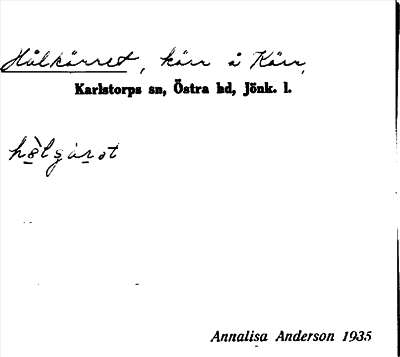 Hålkärret, kärr å Kärr,
Karlstorps sn, Östra hd, Jönk. l.
Annalisa Anderson 1935